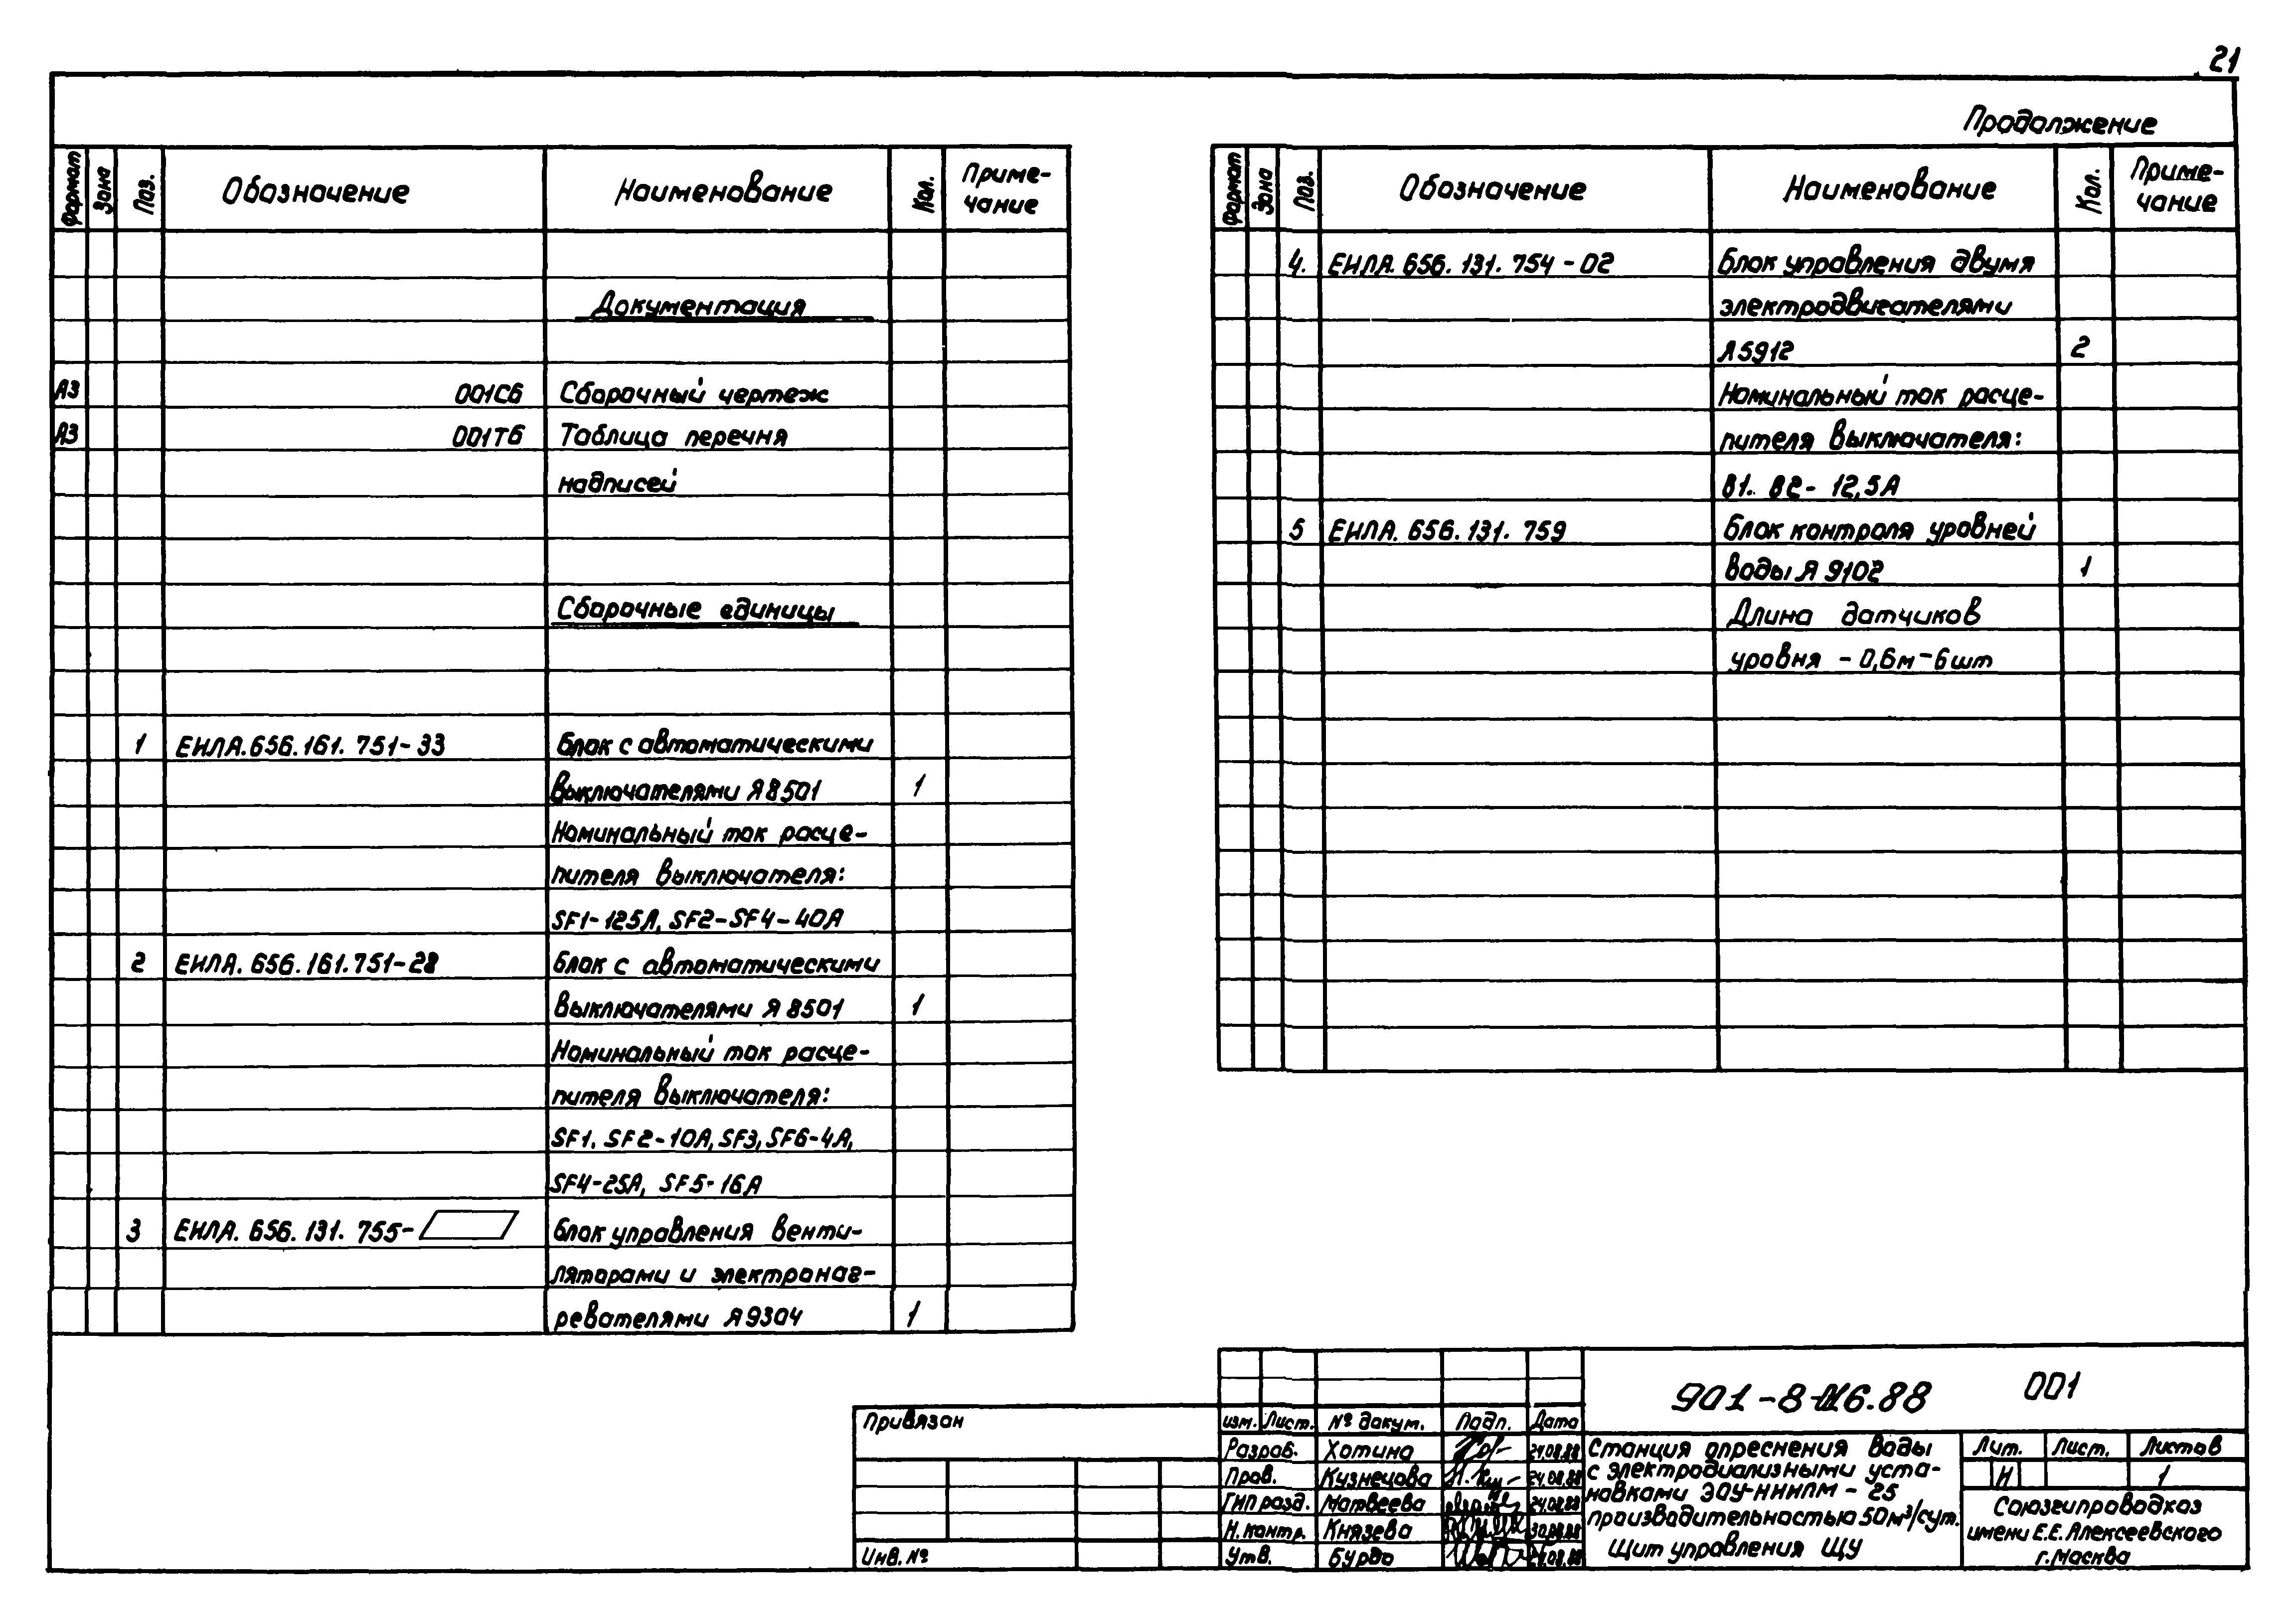 21
Продолжение
Формат Зона Поз. Обозначение Наименование Кол. Приме-
чание
Документация
А3 001СБ Сборочный чертеж
А3 001ТБ Таблица перечня
надписей
Сборочные единицы
1 ЕИЛА.656.161.751-33 Блок с автоматическими
выключателями Я8501 1
Номинальный ток расце-
пителя выключателя:
SF1-125А, SF2-SF4-40А
2 ЕИЛА.656.161.751-28 Блок с автоматическими
выключателями Я8501 1
Номинальный ток расце-
пителя выключателя:
SF1. SF2-10А, SF3, SF6-4А,
SF4-25А, SF5-16А
3 ЕИЛА.656.131.755- Блок управления венти-
ляторами и электронаг-
ревателями Я9304 1
Формат Зона Поз. Обозначение Наименование Кол. Приме-
чание
4. ЕИЛА.656.131.754-02 Блок управления двумя
электродвигателями
Я5912 2
Номинальный ток расце-
пителя выключателя:
В1. В2- 12,5А
5 ЕИЛА.656.131.759 Блок контроля уровней
воды Я9102 1
Длина датчиков
уровня - 0,6м-6шт
Привязан
Инв.№
Изм. Лист. № докум. Подп. Дата
Разраб. Хотина 24.08.88
Пров. Кузнецова 24.08.88
ГИП разд. Матвеева 24.08.88
Н.контр. Князева 30.08.88
Утв. Бурдо
901-8- 16.88 001
Станция опреснения воды
с электродиализными уста-
новками ЭОУ-НИИПМ - 25
производительностью 50м³/сут.
Щит управления ЩУ
Лит. Лист. Листов
И 1
Союзгипроводхоз
имени Е.Е.Алексеевского
г.Москва